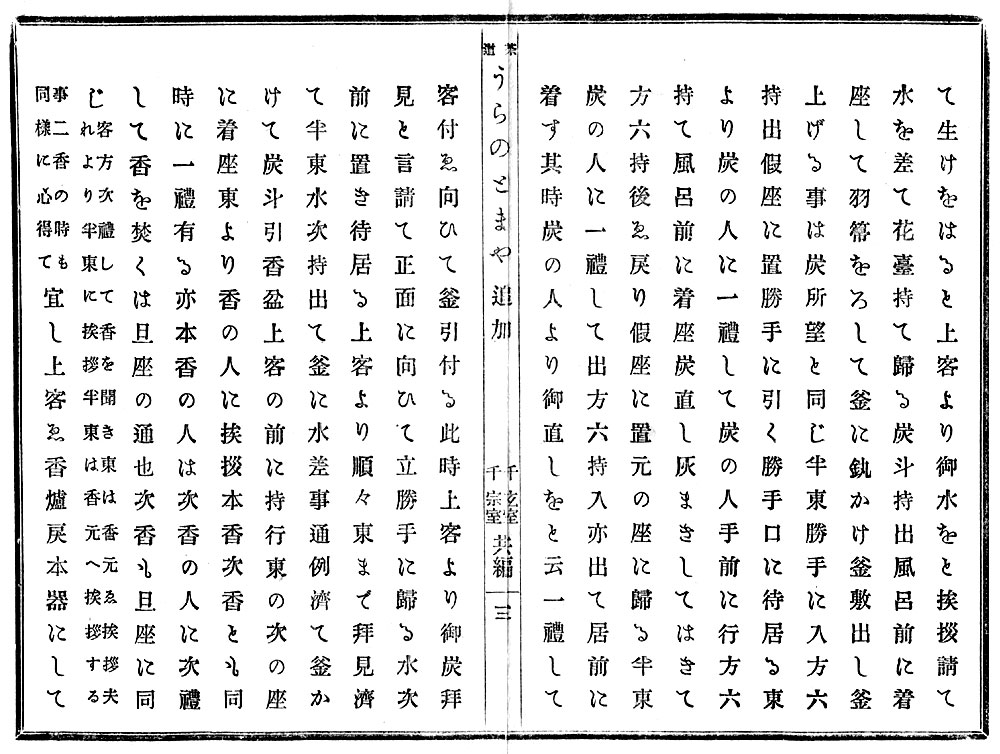 て生けをはると上客より御水をと挨拶請て
水を差て花臺持て歸る炭斗持出風呂前に着
座して羽箒をろして釜に釻かけ釜敷出し釜
上げる事は炭所望と同じ半東勝手に入方六
持出假座に置勝手に引く勝手口に待居る東
より炭の人に一禮して炭の人手前に行方六
持て風呂前に着座炭直し灰まきしてはきて
方六持後ゑ戻り假座に置元の座に歸る半東
炭の人に一禮して出方六持入亦出て居前に
着す其時炭の人より御直しをと云一禮して
茶道 うらのとまや追加
千玄室
千宗室
共編 三
客付ゑ向ひて釜引付る此時上客より御炭拜
見と言請て正面に向ひて立勝手に歸る水次
前に置き待居る上客より順々東まで拜見濟
て半東水次持出て釜に水差事通例濟て釜か
けて炭斗引香盆上客の前に持行東の次の座
に着座東より香の人に挨拶本香次香とも同
時に一禮有る亦本香の人は次香の人に次禮
して香を焚くは旦座の通也次香も旦座に同
じ客方次禮して香を聞き東は香元ゑ挨拶夫
れより半東に挨拶半東は香元へ挨拶する
事二香の時も
同樣に心得て
宜し上客ゑ香爐戻本器にして